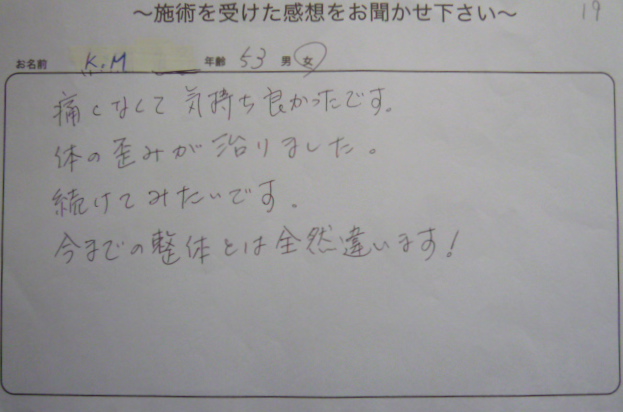 ～施術を受けた感想をお聞かせ下さい～ 19
お名前 K.M 年齢 53 男 女
痛くなくて気持ち良かったです。
体の歪みが治りました。
続けてみたいです。
今までの整体とは全然違います!